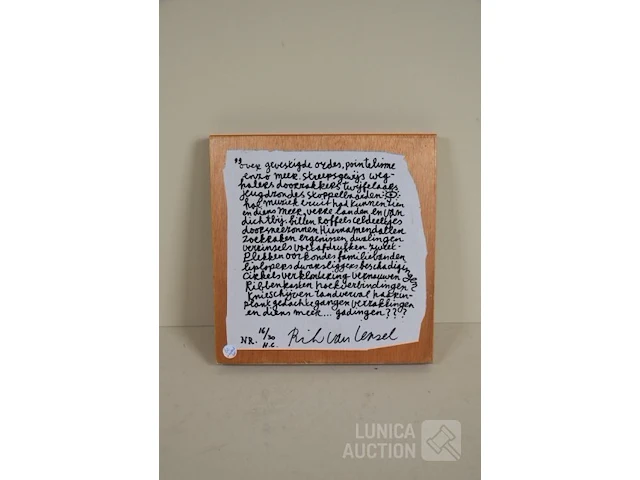 "over gevestigde ordes, pointelisme
enzo meer. streepsgewijs weg-
halers doorzakkers twijfelaars
jeugdzondes stoppelbaarden
hoe muziek eruit had kunnen zien
en diens meer, verre landen en van
dichtbij. billen
doorsneezonnen
zoekraken ergenissen dwalingen
vereinsels voetafdrukken zweet-
plekken oorkondes familiebanden
liplopers dwarsliggers beschadigingen
cirkels verklontering vernauwen
Ribbenkasten hoekverbindingen
knieschijven tandverval hakkin-
plank gedachtegangen verzakkingen
en diens meer... gadingen???
NR. 16/30 H.C. Rik van Iersel
LUNICA
AUCTION